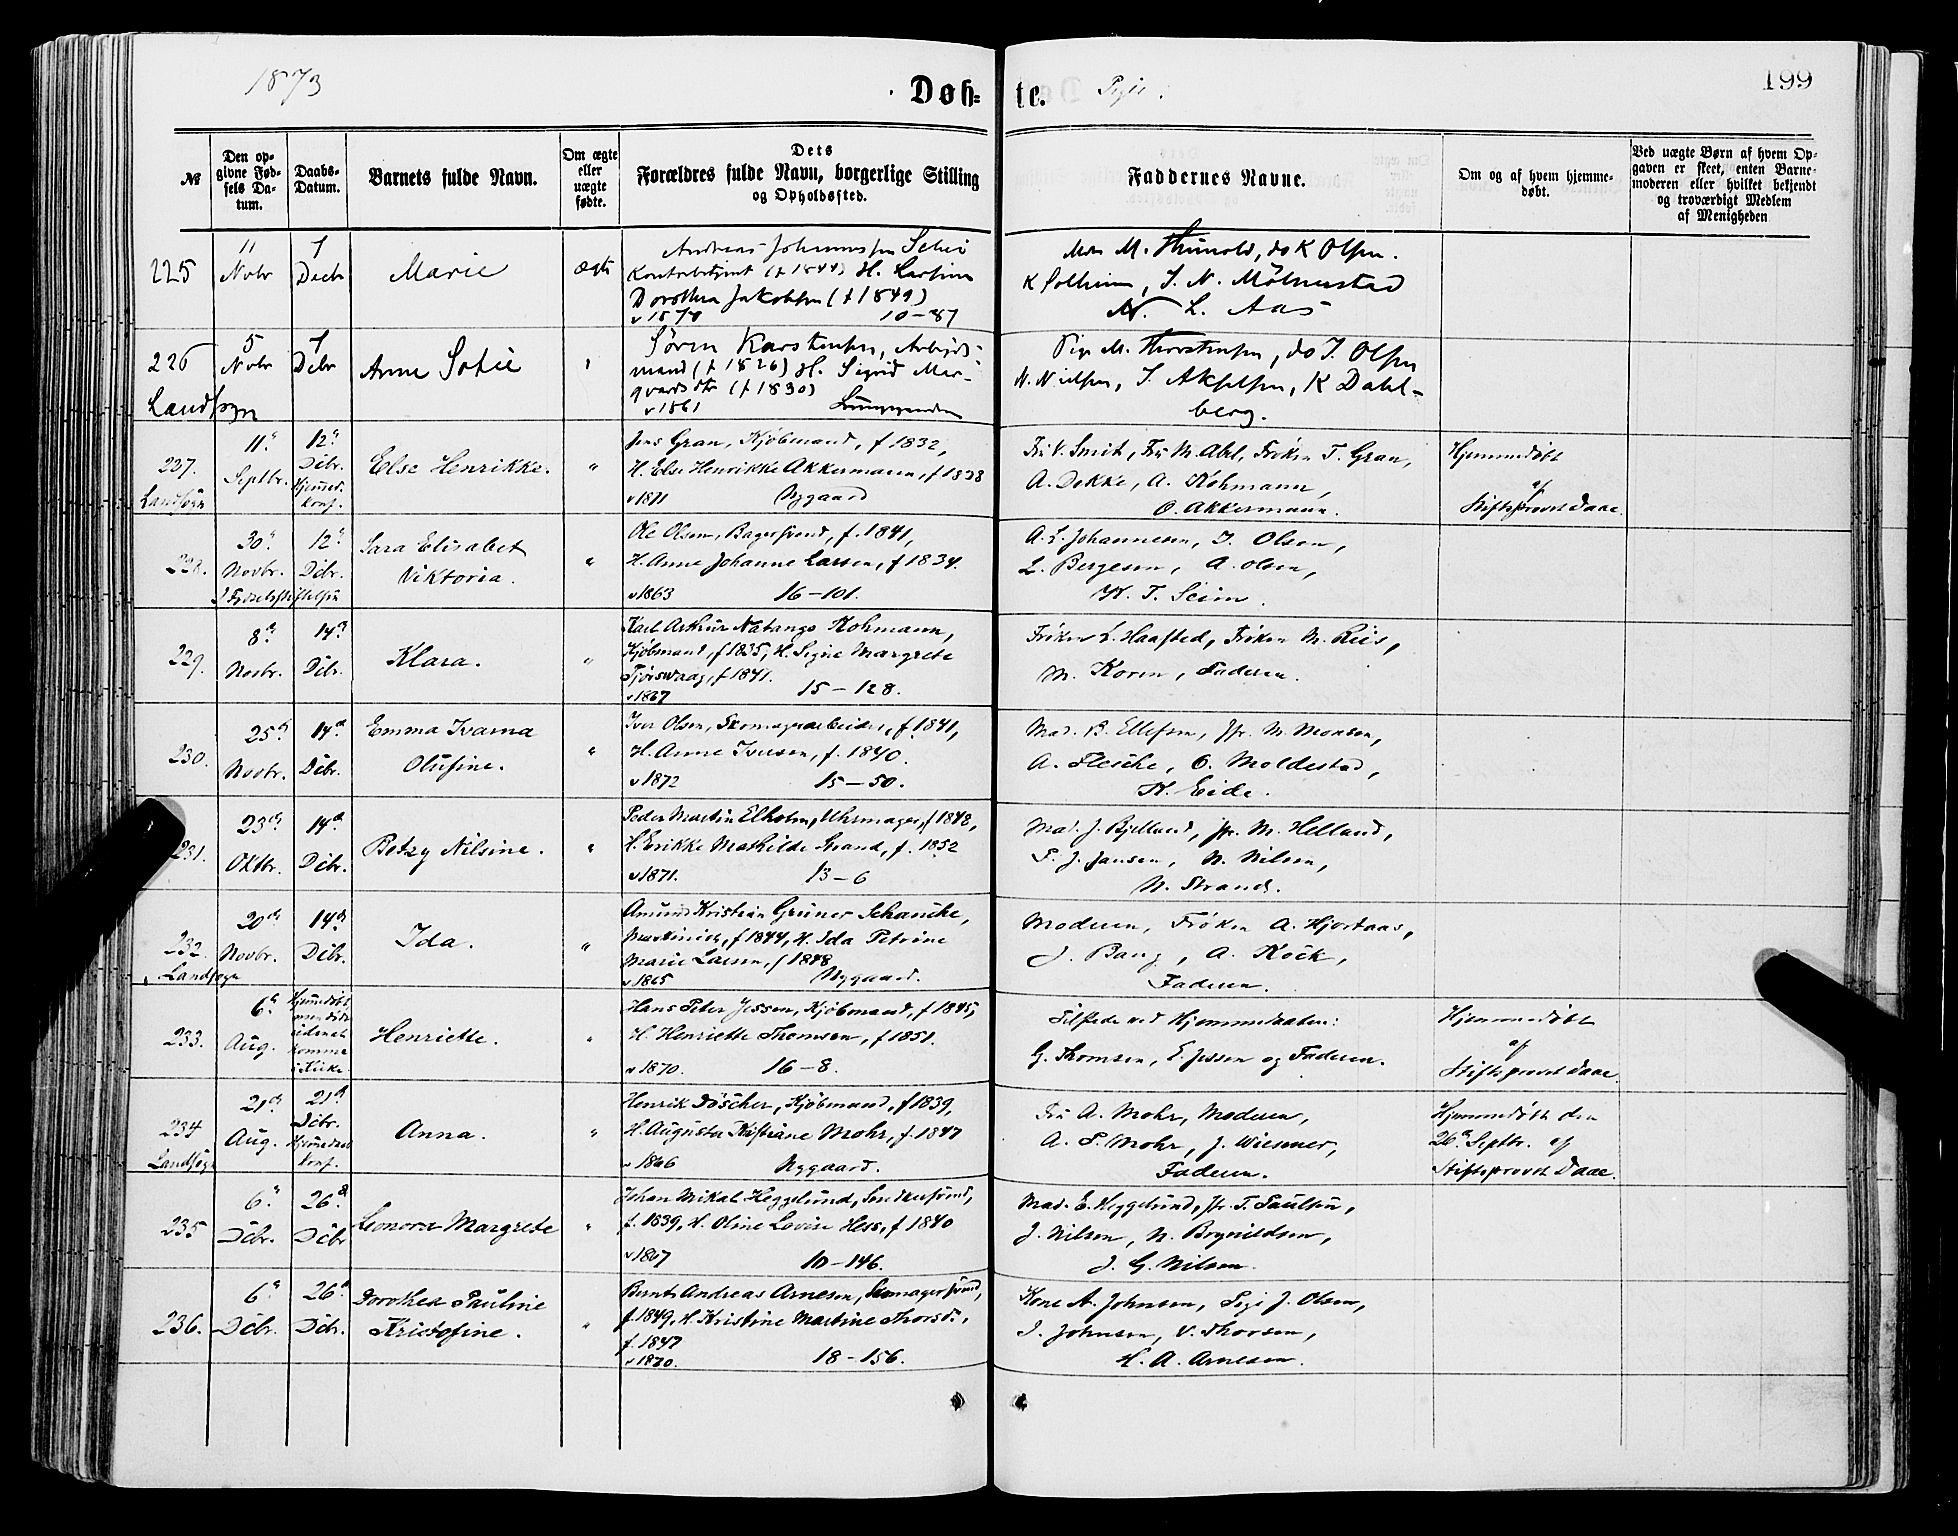 1873
Døb-
te.
Piger.
199
№
Den op-
givne Fød-
sels Da-
tum.
Daabs-
Datum.
Barnets fulde Navn.
Om ægte
eller
uægte
fødte.
Dets
Forældres fulde Navn, borgerlige Stilling
og Opholdssted.
Faddernes Navne.
Om og af hvem hjemme-
døbt.
Ved uægte Børn af hvem Op-
gaven er skeet, enten Barne-
moderen eller hvilket bekjendt
og troværdigt Medlem
af Menigheden
225
11 Novbr
7 Decbr
Marie
ægte
Andreas Johannessen
(f 1844) H.
Dorothea Jakobsen (f 1849)
10-87
M. do K Olsen.
K Solheim, J. N. Mölmestad
N. L. Aas
226
Landsogn
5 Novbr
7 Dcbr
Anne Sofie
Søren Karstensen, Arbeids-
mand (f 1826) H. Sigrid Mar-
(f 1830)
v 1861
Pige M. Thorstensen, do J. Olsen
N. Nielsen, J. Akselsen, K Dahl-
berg.
227.
Landsogn
11te Septbr.
12te Dcbr.
Hjemmed.
konf.
Else Henrikke.
"
Jens Gran, Kjöbmand, f 1832,
H. Else Henrikke Akkermann, f 1838
v 1871 Nygaard
Fru V. Smit, Fru M. Abel, Fröken T. Gran,
A. Dekke, A. Kohmann,
O. Akkermann.
Hjemmedöbt
af
Stiftsprovst Daae.
228.
30te Novbr.
I Födselsstiftelsen
12te Dcbr.
Sara Elisabet
Viktoria.
"
Ole Olsen, Bagersvend, f. 1841,
H. Anne Johanne Larsen, f 1834.
v 1863 16-101.
A. L. Johannesen, J. Olsen,
L. Bergesen, A. Olsen,
K. T. Seim.
229.
8de Novbr.
14de Dcbr.
Klara.
"
Karl Arthur Natango Kohmann,
Kjöbmand, f 1835, H. Signe Margrete
f 1841.
v 1867 15-128.
Fröken L. Haafsted, Fröken M. Reis,
M. Koren, Faderen.
230.
25de Novbr.
14de Dcbr.
Emma Ivarna
Olufine.
"
Iver Olsen, Skomagerarbeider, f 1841,
H. Anne Iversen, f. 1840.
v 1872 15-50.
Mad. B. Ellefsen, Jfr. M. Monsen,
A. Flesche, O. Moldestad,
K. Eide.
231.
23de Oktbr.
14de Dcbr.
Betzy Nilsine.
"
Peder Martin Elholm, Uhrmager, f 1848,
H. Erikke Mathilde Strand, f. 1852
v 1871. 13-6
Mad. J. Bjelland, Jfr. M. Helland,
P. J. Jansen, N. Nilsen,
N. Strand.
232.
Landsogn
20de Novbr.
14de Dcbr.
Ida.
"
Amund Kristian Gruner Schancke,
Maskinist, f 1844, H. Ida Petrine
Marie Larsen, f 1848
v 1865 Nygaard.
Moderen, Fröken A. Hjortaas,
J. Bang, A. Kock,
Faderen.
233.
6te Aug.
Hjemmedöbt
men döde
uden at
komme
i Kirke.
Henriette.
"
Hans Peter Jessen, Kjöbmand, f 1845,
H. Henriette Thomsen, f 1851.
v 1870. 16-8.
Tilstede ved Hjemmedaaben:
G. Thomsen, E. Jessen og Faderen.
Hjemmedöbt
af
Stiftsprovst Daae.
234
Landsogn
21de Aug.
21de Dcbr.
Hjemmedaab
konf.
Anna.
"
Henrik Döscher, Kjöbmand, f 1839,
H. Augusta Kristiane Mohr, f. 1847
v 1866 Nygaard.
Fru A. Mohr, Moderen,
A. P. Mohr, J. Wiesener,
Faderen.
Hjemmedöbt den
26de Septbr. af
Stiftsprovst Daae.
235
6te Dcbr.
26de Dcbr
Leonora Margrete
"
Johan Mikal Heggelund, Snedkersvend,
f. 1839, H. Oline Lovise Hess, f 1840
v 1867 10-146.
Mad. E. Heggelund, Jfr. T. Paulsen,
J. Nilsen, N. Brynildsen,
J. G. Nilsen.
236.
6te Dcbr.
26de Dcbr.
Dorothea Pauline
Kristofine.
"
Bernt Andreas Arnesen, Skomagersvend,
f. 1849, H. Kristine Martine Thorsd.,
f. 1847
v 1870. 18-156.
Kone A. Johnsen, Pige J. Olsen,
J. Johnsen, V. Thorsen,
H. A. Arnesen.